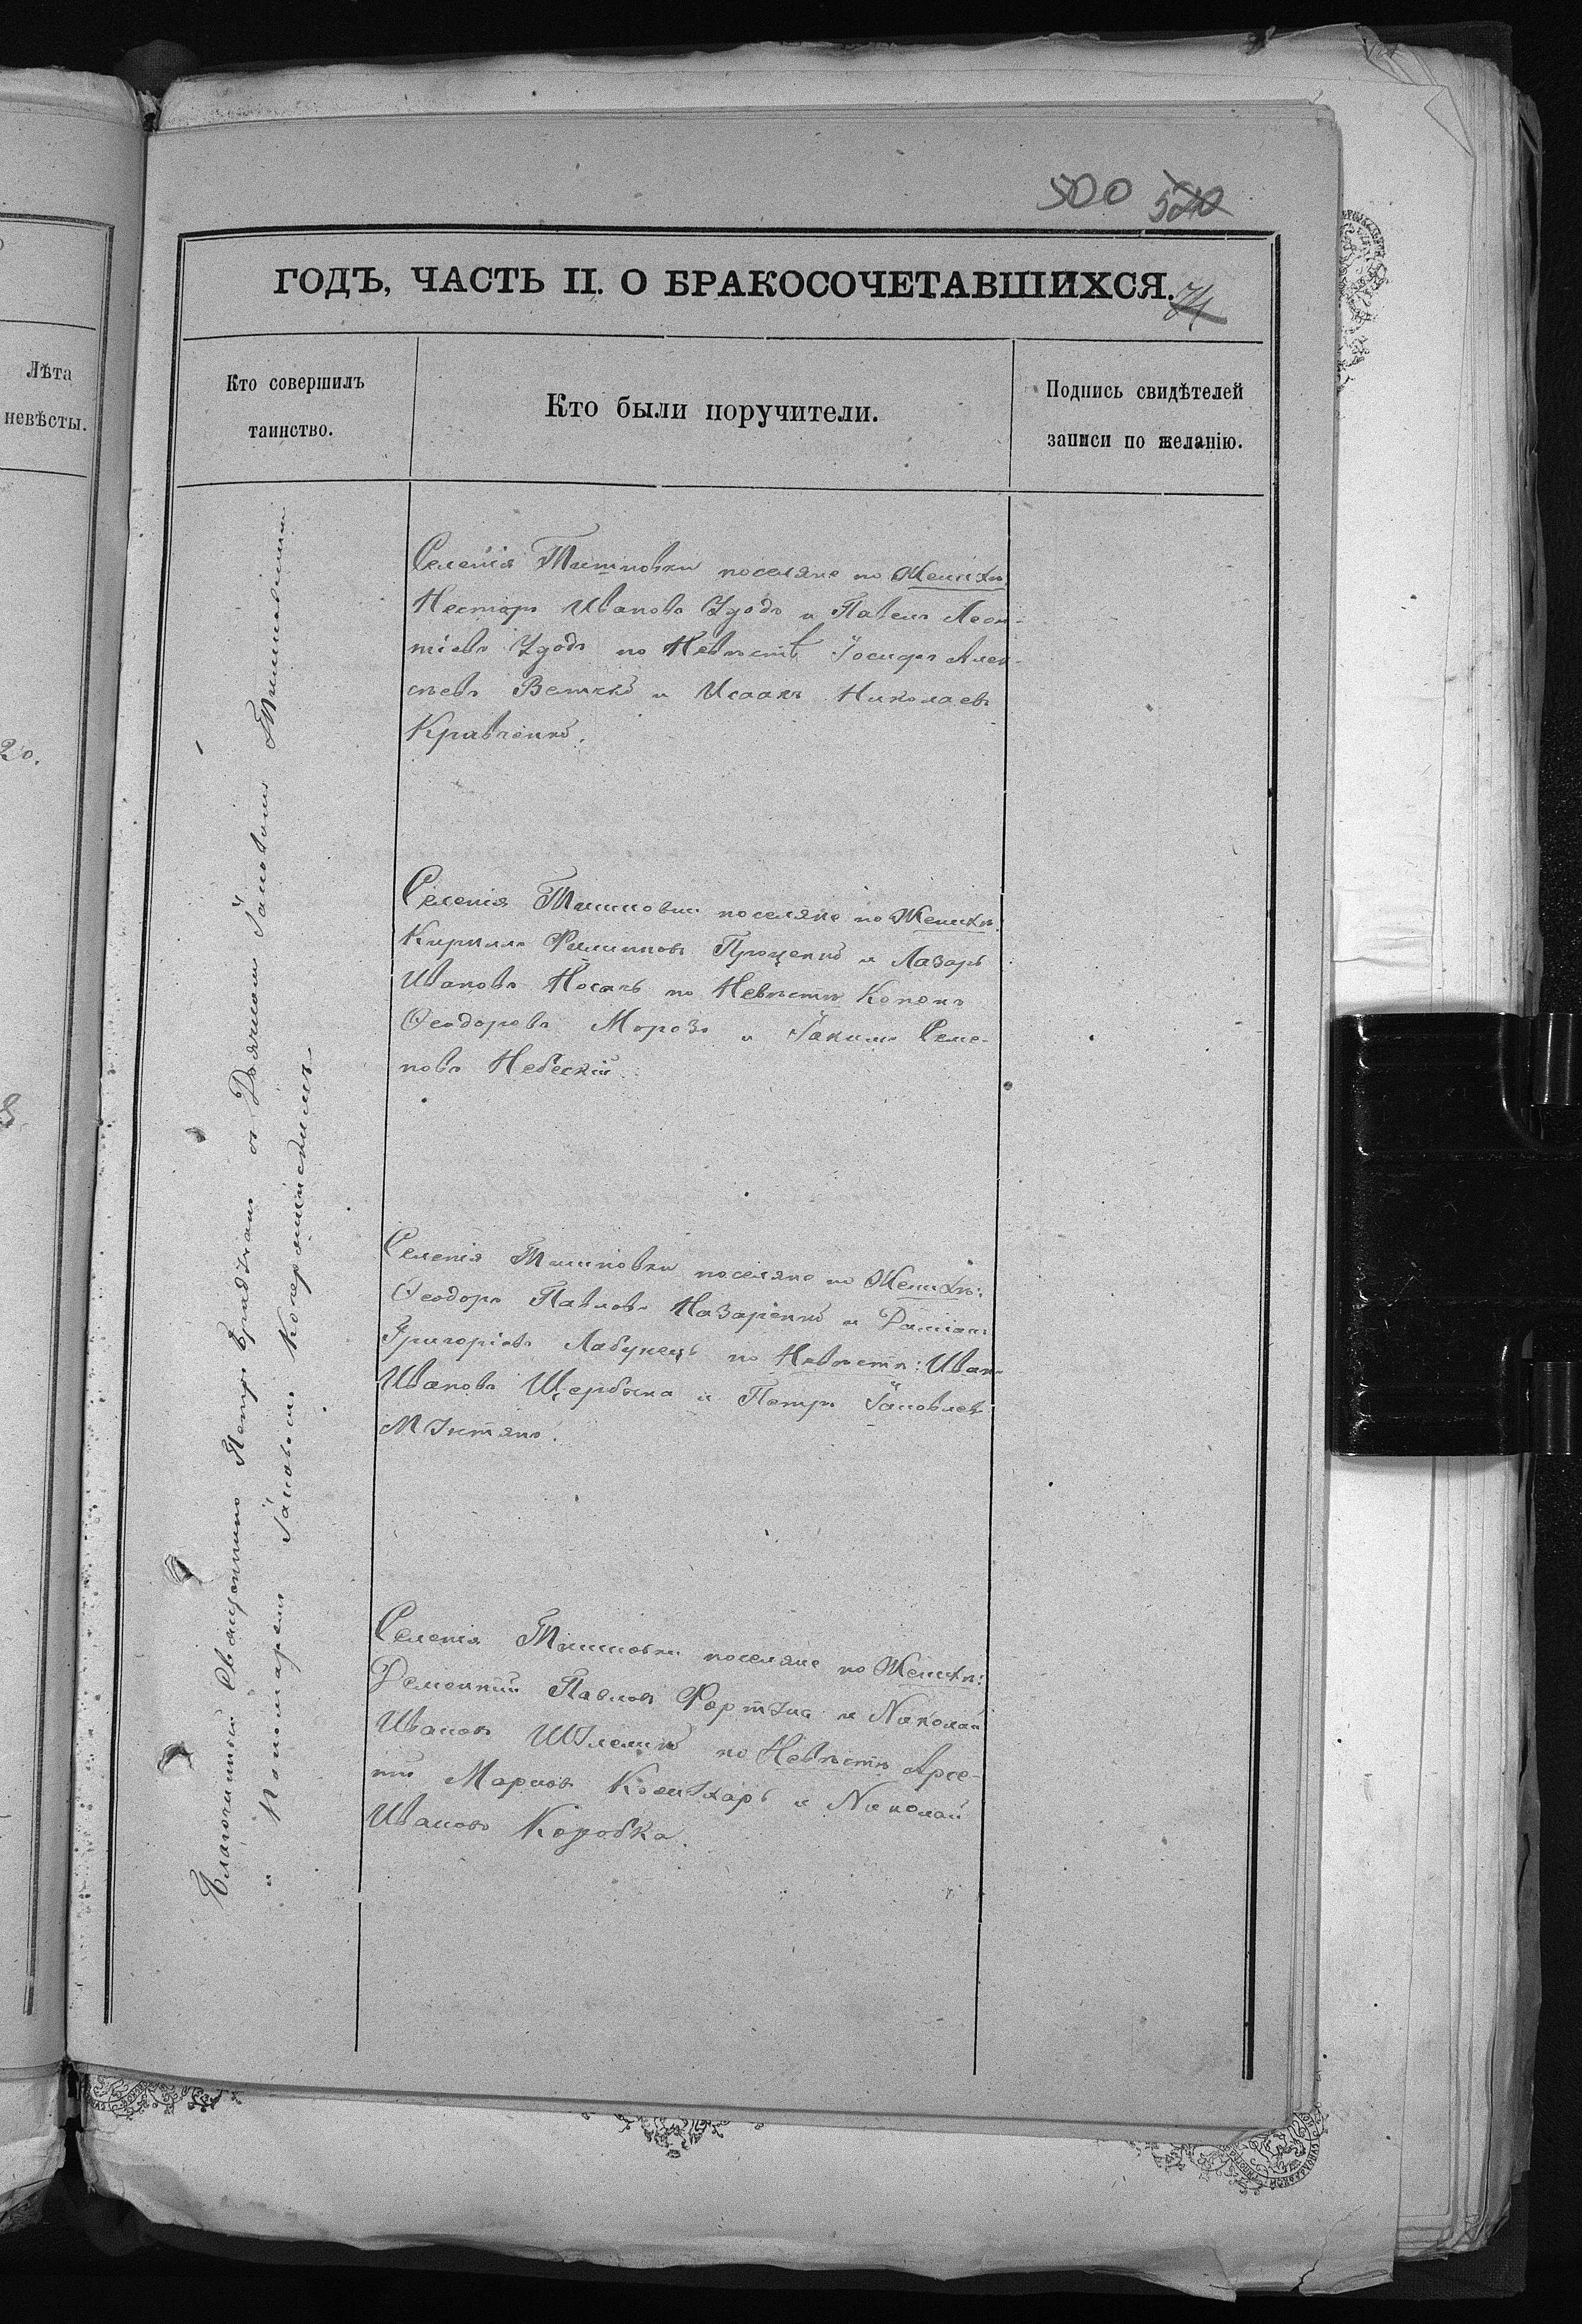 500 520
ГОДЪ, ЧАСТЬ II. О БРАКОСОЧЕТАВШИХСЯ.
71
Лѣта
невѣсты.
Кто совершилъ
таинство.
Кто были поручители.
Подпись свидѣтелей
записи по желанію.
20.
Благочинный Священникъ Петръ съ Діячкомъ Іаковомъ
и Пономаремъ Іаковомъ
Селенія поселяне по Женихѣ:
Несторъ Ивановъ Удодъ и Павелъ Леон-
тіевъ Удодъ по Невѣстѣ Іосифъ Алек-
сѣевъ и Исаакъ Николаевъ
Кравченко.
Селенія поселяне по Женихѣ:
Кириллъ Филипповъ Проценко и Лазарь
Ивановъ Носачъ по Невѣстѣ Кононъ
Ѳеодоровъ Морозъ и Іакимъ Семе-
новъ Небескій.
Селенія поселяне по Женихѣ:
Ѳеодоръ Павловъ Назаренко и Даміанъ
Григоріевъ Лабунецъ по Невѣстѣ: Иванъ
Ивановъ Щербина и Петръ Іаковлевъ
Селенія поселяне по Женихѣ:
Дементій Павловъ Фортуна и Николай
Ивановъ по Невѣстѣ Арсе-
ній Марковъ и Николай
Ивановъ Коробка.